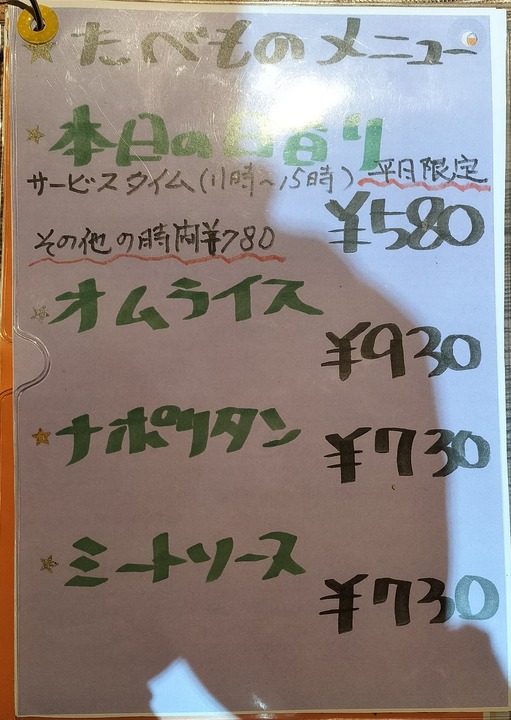 たべものメニュー
本日の日替り
サービスタイム(11時~15時)平日限定
¥580
その他の時間¥780
オムライス
¥930
ナポリタン
¥730
ミートソース
¥730